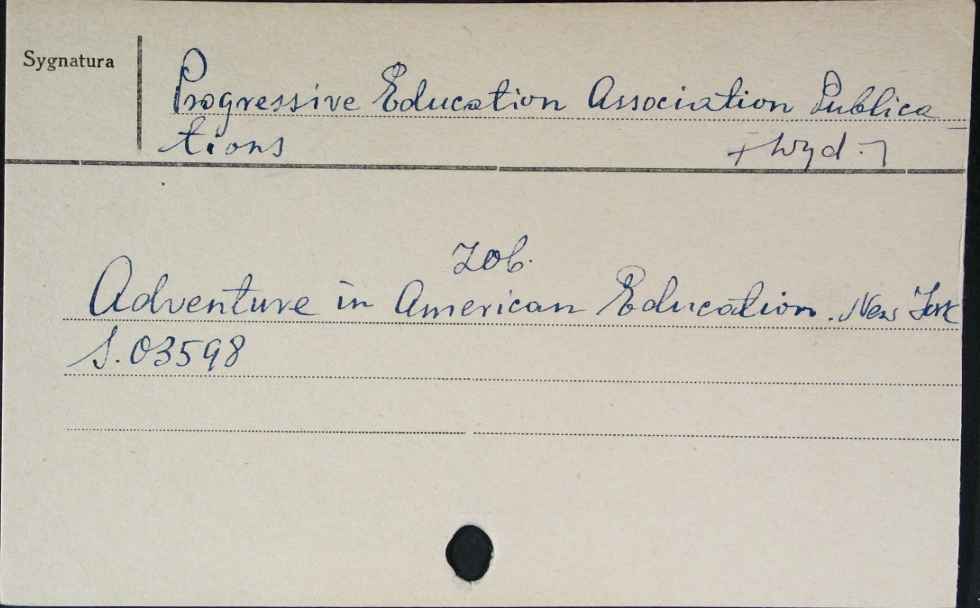 Sygnatura
Progressive Education Association Publica
tions
[wyd.]
Zob.
Adventure in American Education. New York
S. 03598